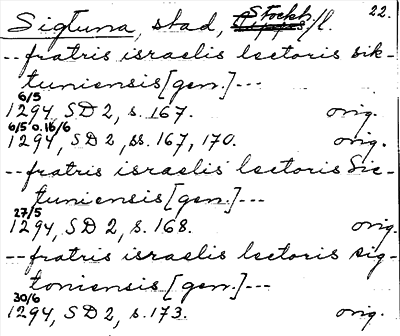 Sigtuna, stad, Stockh. l. 22.
--fratris israelis lectoris sik-
tuniensis [gen.]---
6/5
1294, SD 2, s. 167. orig.
6/5 o. 16/6
1294, SD 2, ss. 167, 170. orig.
--fratris israelis lectoris Sic-
tuniensis [gen.]---
27/5
1294, SD 2, s. 168. orig.
--fratris israelis lectoris sig-
toniensis [gen.]---
30/6
1294, SD 2, s. 173. orig.